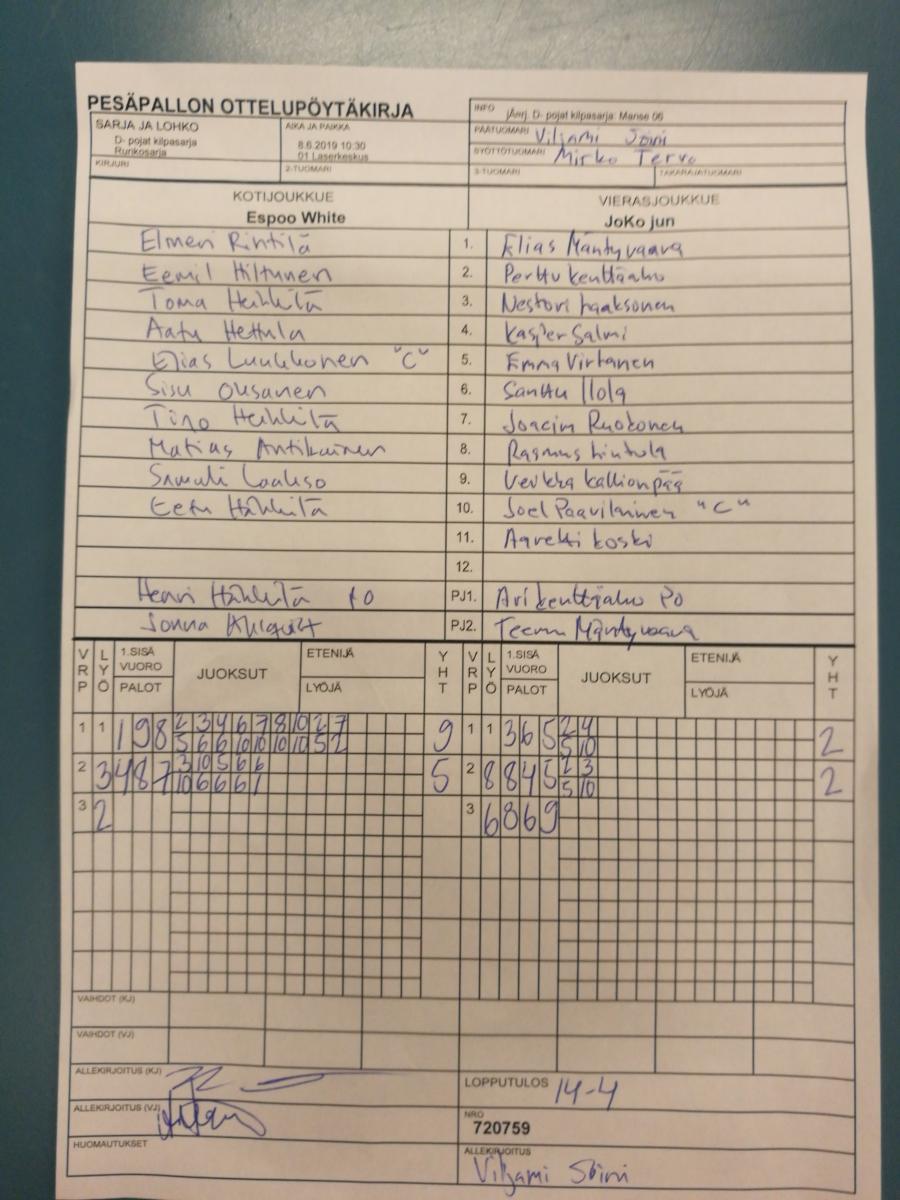 PESÄPALLON OTTELUPÖYTÄKIRJA
INFO jÄrrj. D- pojat kilpasarja Manse 06
SARJA JA LOHKO
D- pojat kilpasarja
Runkosarja
AIKA JA PAIKKA
8.6.2019 10:30
01 Laserkeskus
PÄÄTUOMARI Viljami Soini
SYÖTTÖTUOMARI Mirko Tervo
KIRJURI
2-TUOMARI
3-TUOMARI
TAKARAJATUOMARI
KOTIJOUKKUE
Espoo White
VIERASJOUKKUE
JoKo jun
Elmeri Rintilä 1. Elias Mäntyvaara
Eemil Hiltunen 2. Perttu Kenttäaho
Toma Heikkilä 3. Nestori
Aatu Hettula 4. Kasper Salmi
Elias Luukkonen "C" 5. Emma Virtanen
Sisu Ousanen 6. Santtu Ilola
Tino Heikkilä 7. Joacim Ruokonen
Matias Antikainen 8. Rasmus Hintula
Samuli Laakso 9. Veikka Kallionpää
Eetu 10. Joel Paavilainen "C"
11. Aaretti Koski
12.
Henri PJ1. Ari Kenttäaho PO
Jonna PJ2. Teemu Mäntyvaara
VRP LYÖ 1.SISÄ VUORO PALOT JUOKSUT ETENIJÄ LYÖJÄ YHT VRP LYÖ 1.SISÄ VUORO PALOT JUOKSUT ETENIJÄ LYÖJÄ YHT
1 1 1 9 8 2 3 4 6 7 8 10 2 7 9 1 1 3 6 5 2 4 2
5 6 6 10 10 10 10 5 2 5 10
2 3 4 8 7 3 10 5 6 6 5 2 8 8 4 5 2 3 2
10 6 6 6 1 5 10
3 2 3 6 8 6 9
VAIHDOT (KJ)
VAIHDOT (VJ)
ALLEKIRJOITUS (KJ)
LOPPUTULOS 14-4
ALLEKIRJOITUS (VJ)
NRO
720759
HUOMAUTUKSET
ALLEKIRJOITUS
Viljami Soini